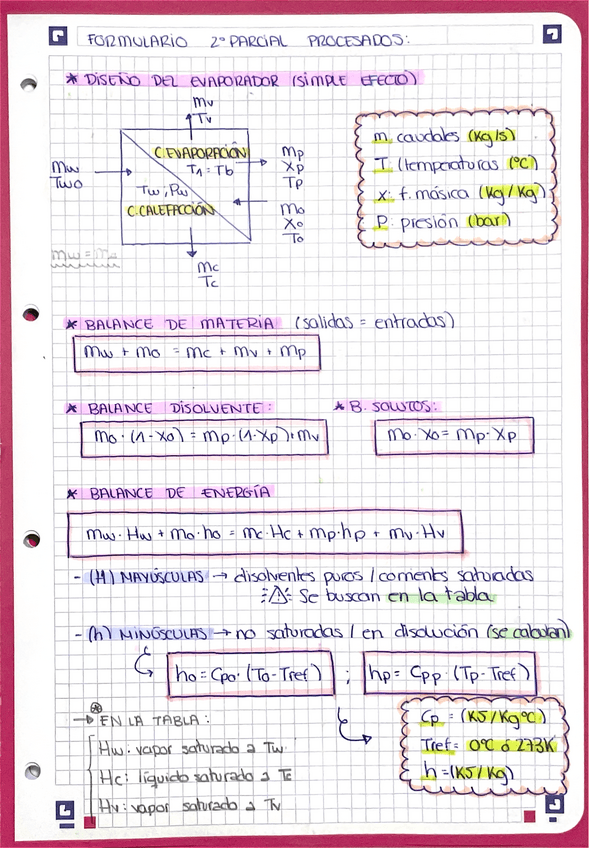 FORMULARIO 2º PARCIAL PROCESADOS:
* DISEÑO DEL EVAPORADOR (SIMPLE EFECTO)
mv
Tv
C. EVAPORACIÓN
T1 = Tb
mw
Two
Tw, Pw
C. CALEFACCIÓN
mp
Xp
Tp
mo
Xo
To
mc
Tc
m. caudales (Kg/s)
T. (temperaturas (ºC)
x: f. másica (Kg/Kg)
P. presión (bar)
* BALANCE DE MATERIA (salidas = entradas)
mw + mo = mc + mv + mp
* BALANCE DISOLVENTE:
mo·(1-Xo) = mp·(1-Xp)+mv
* B. SOLUTOS:
mo·Xo = mp·Xp
* BALANCE DE ENERGÍA
mw·Hw + mo·ho = mc·Hc + mp·hp + mv·Hv
- (H) MAYÚSCULAS → disolventes puros / corrientes saturadas
⚠ Se buscan en la tabla
- (h) MINÚSCULAS → no saturadas / en disolución (se calculan)
ho = Cpo·(To-Tref) ; hp = Cpp·(Tp-Tref)
EN LA TABLA:
Hw: vapor saturado a Tw
Hc: líquido saturado a Tc
Hv: vapor saturado a Tv
Cp = (KJ/KgºC)
Tref = 0ºC ó 273K
h = (KJ/Kg)